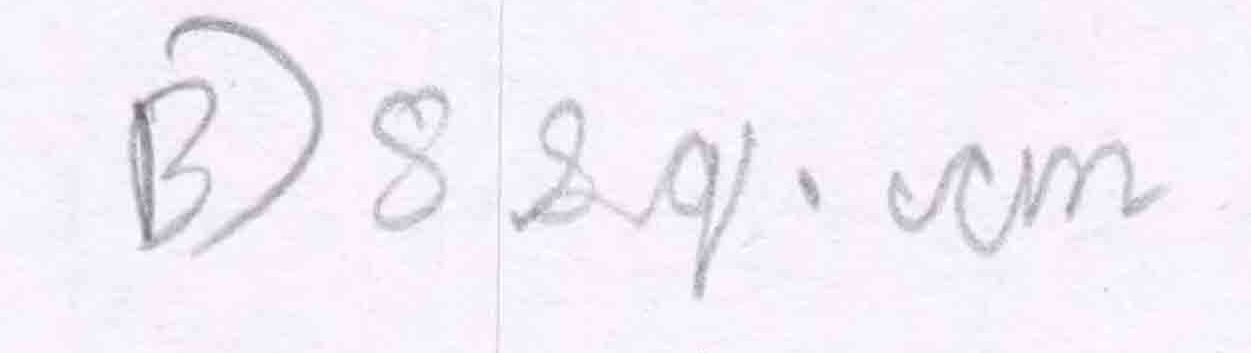 B) 8 sq. cm